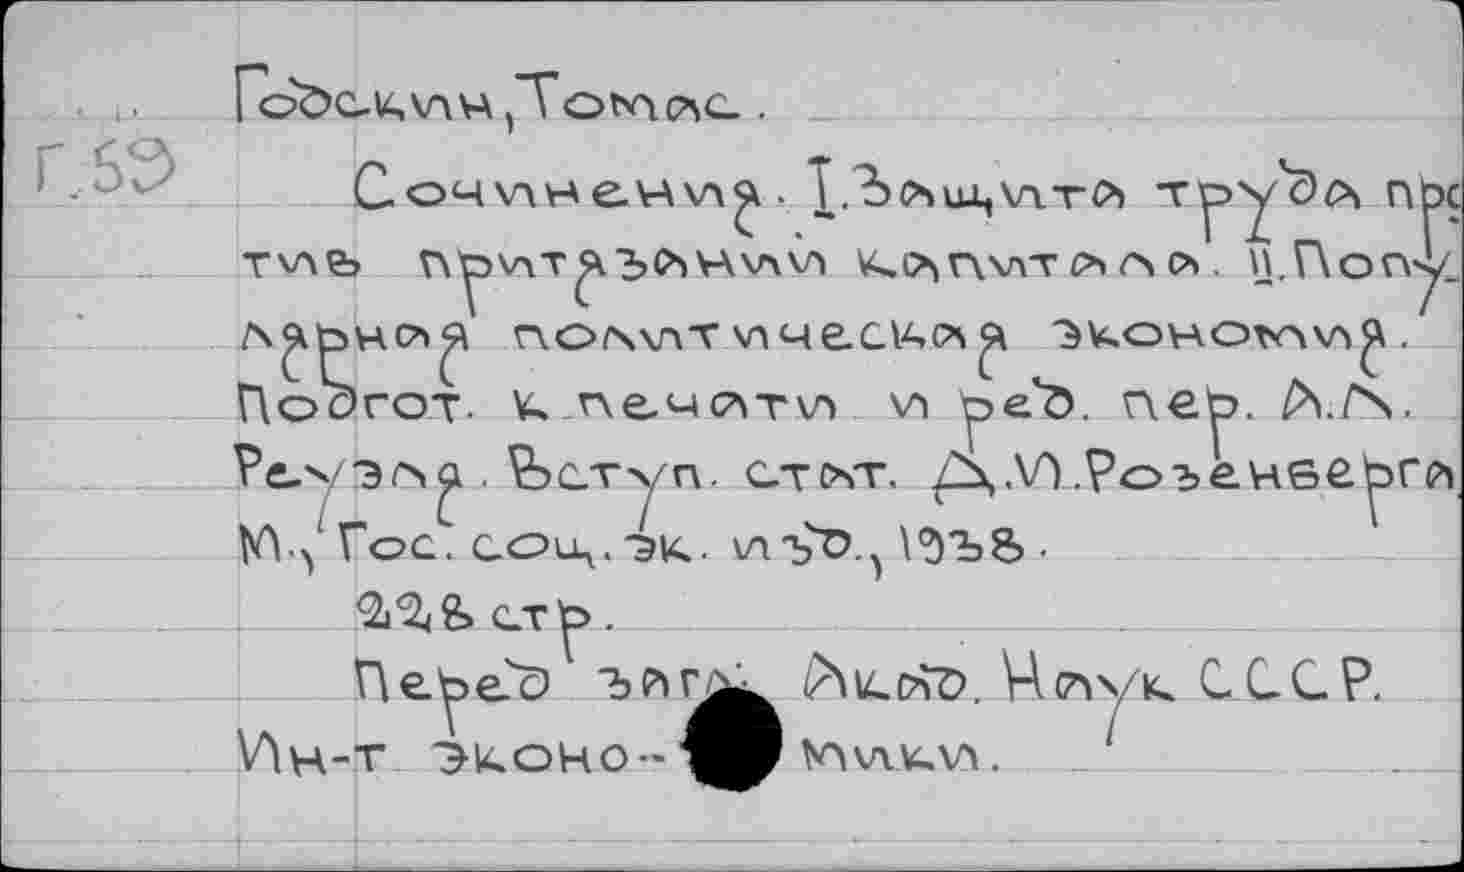 Годскин, Томас.
Г.59
Сочинения. I. Защита труда про
тив притязании капитала. II. Попу-
лярная политическая экономия.
Подгот. к печати и ред. пер. А.Л.
Реуэля. Вступ. стат. Д.И.Розенберга
М., Гос. соц.-эк. изд., 1938.
228 стр.
Перед загл. Акад. Наук СССР.
Ин-т эконо- мики.